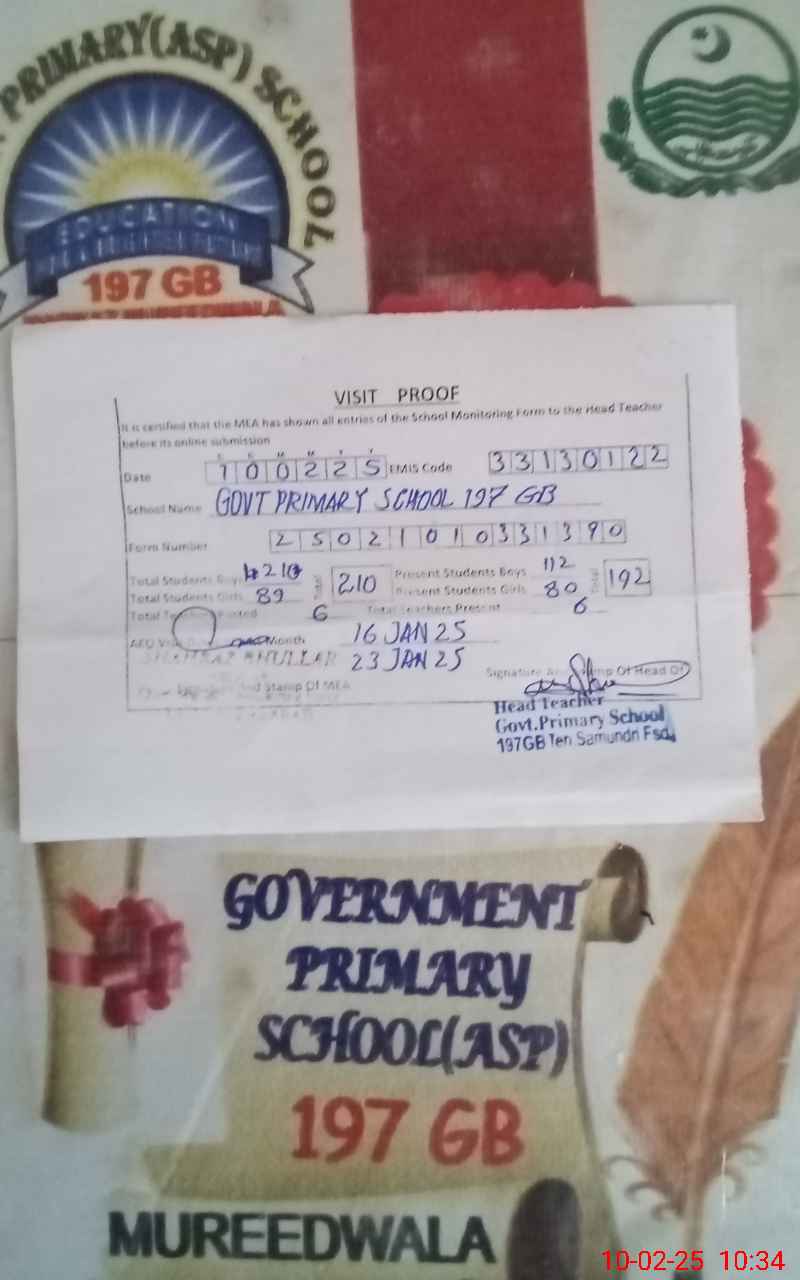 PRIMARY(ASP) SCHOOL
EDUCATION
197 GB
VISIT PROOF
It is certified that the MEA has shown all entries of the School Monitoring Form to the Head Teacher
before its online submission
Date 100225 EMIS Code 33130122
School Name GOVT PRIMARY SCHOOL 197 GB
Form Number 25021010331390
Total Students Boys Total 210 Present Students Boys 112 Total 192
Total Students Girls 89 Present Students Girls 80
Total Posted 6 Total Teachers Present 6
Month 16 JAN 25
23 JAN 25
Signature Stamp Of Head Of
Stamp Of MEA
Head Teacher
Govt.Primary School
197GB Teh Samundri Fsd.
GOVERNMENT
PRIMARY
SCHOOL(ASP)
197 GB
MUREEDWALA
10-02-25 10:34